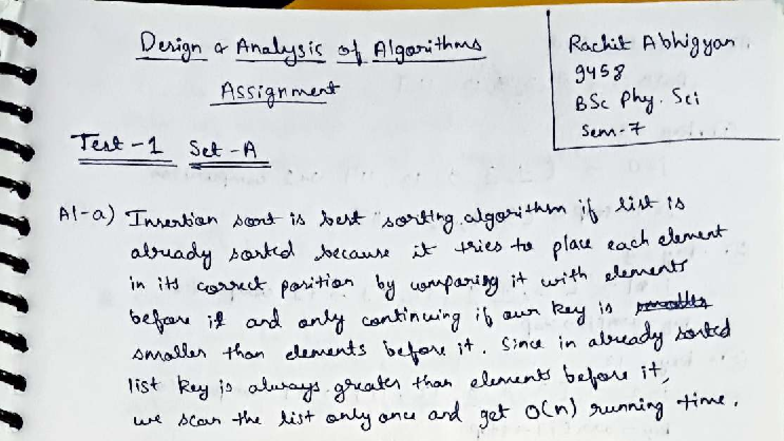 Design & Analysis of Algorithms
Assignment
Rachit Abhigyan.
9458
BSc Phy. Sci
Sem-7
Test-1 Set-A
A1-a) Insertion sort is best sorting algorithm if list is
already sorted because it tries to place each element
in its correct position by comparing it with elements
before it and only continuing if our key is
smaller than elements before it. Since in already sorted
list key is always greater than elements before it,
we scan the list only once and get O(n) running time.